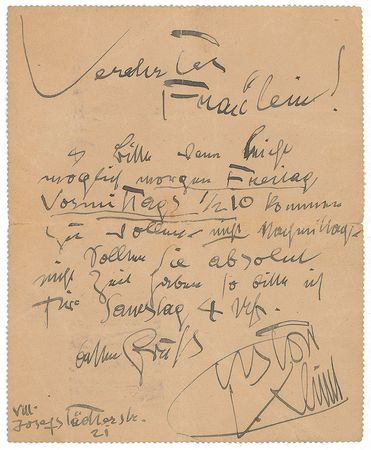 Verehrtes
Fräulein!
Bitte wenn leicht
möglich morgen Freitag
Vormittags 1/2 10 kommen
zu wollen nicht Nachmittag
Sollten Sie absolut
nicht Zeit haben so bitte ich
für Samstag 4 Uhr.
Gruß
Gustav
Klimt
VIII. Josefstädterstr.
21